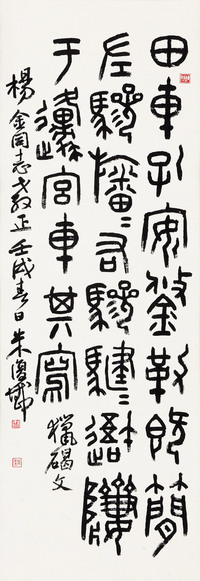 田車孔安鋚勒既簡
左驂旛〻右驂騝〻隮
于邍宮車其寫 獵碣文
楊金同志教正 壬戌春日 朱復戡